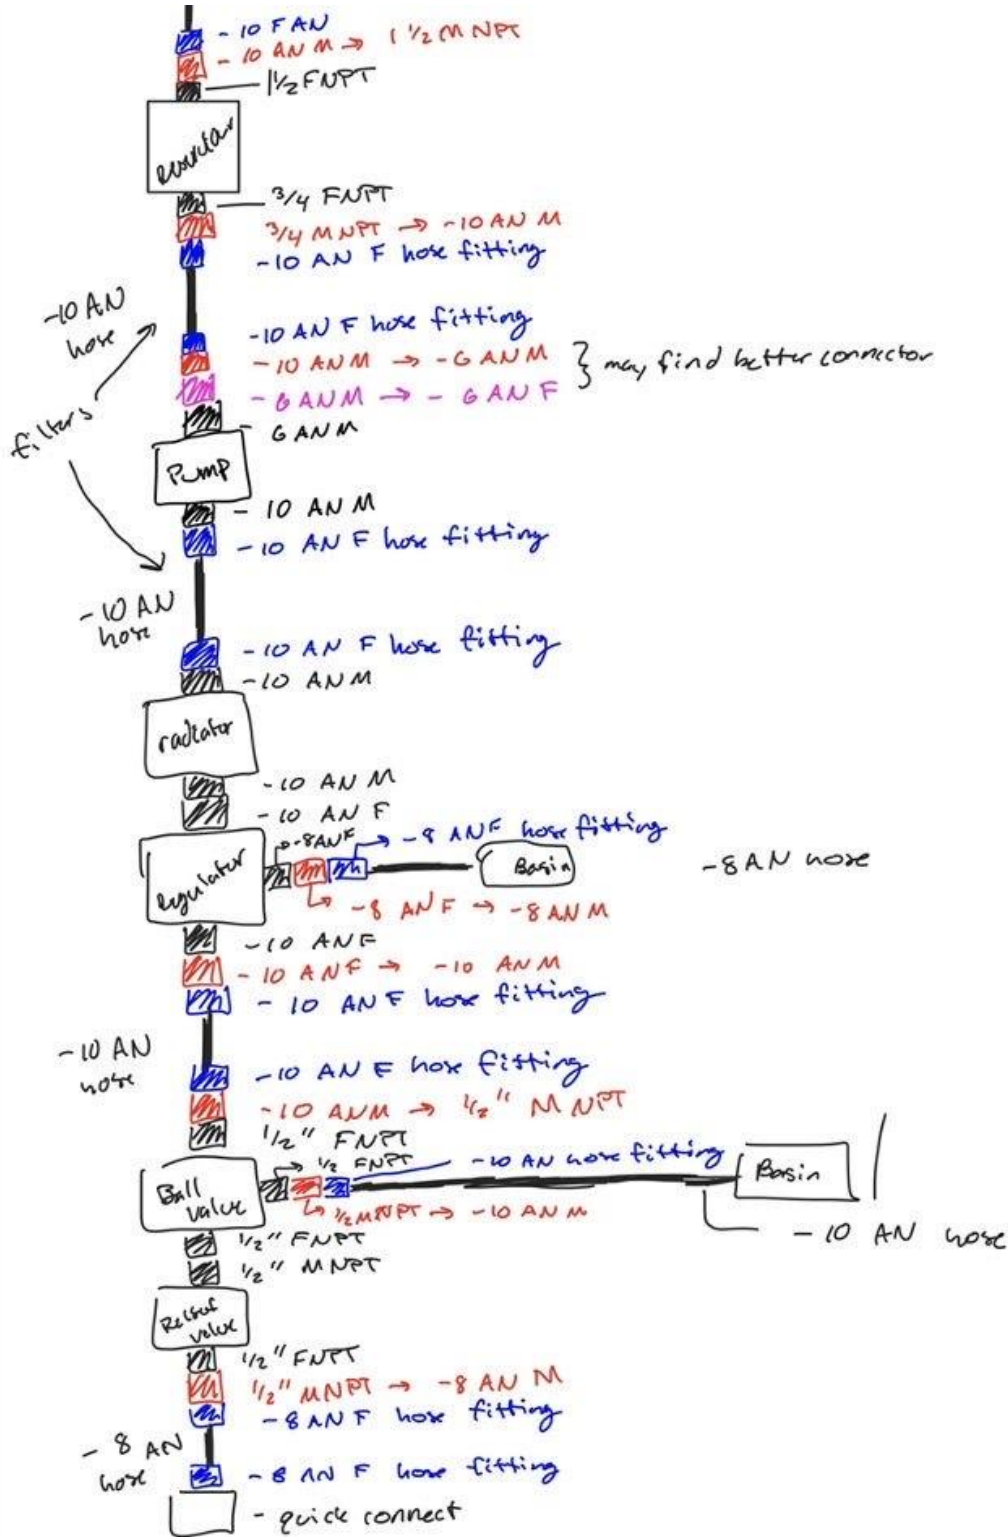 -10 FAN
-10 AN M → 1 1/2 M NPT
1 1/2 FNPT
3/4 FNPT
3/4 MNPT → -10 AN M
-10 AN F hose fitting
-10 AN hose
-10 AN F hose fitting
-10 ANM → -6 ANM
-6 ANM → -6 ANF
} may find better connector
filters
-6 ANM
Pump
-10 AN M
-10 AN F hose fitting
-10 AN hose
-10 AN F hose fitting
-10 ANM
radiator
-10 AN M
-10 AN F
-8 ANF
-8 ANF hose fitting
Regulator
Basin
-8 AN hose
-8 ANF → -8 ANM
-10 ANF
-10 ANF → -10 ANM
-10 ANF hose fitting
-10 AN hose
-10 AN F hose fitting
-10 ANM → 1/2" M NPT
1/2" FNPT
1/2 FNPT
-10 AN hose fitting
Ball valve
Basin
1/2 MNPT → -10 ANM
-10 AN hose
1/2" FNPT
1/2" MNPT
valve
1/2" FNPT
1/2" MNPT → -8 AN M
-8 ANF hose fitting
-8 AN hose
-8 AN F hose fitting
- quick connect